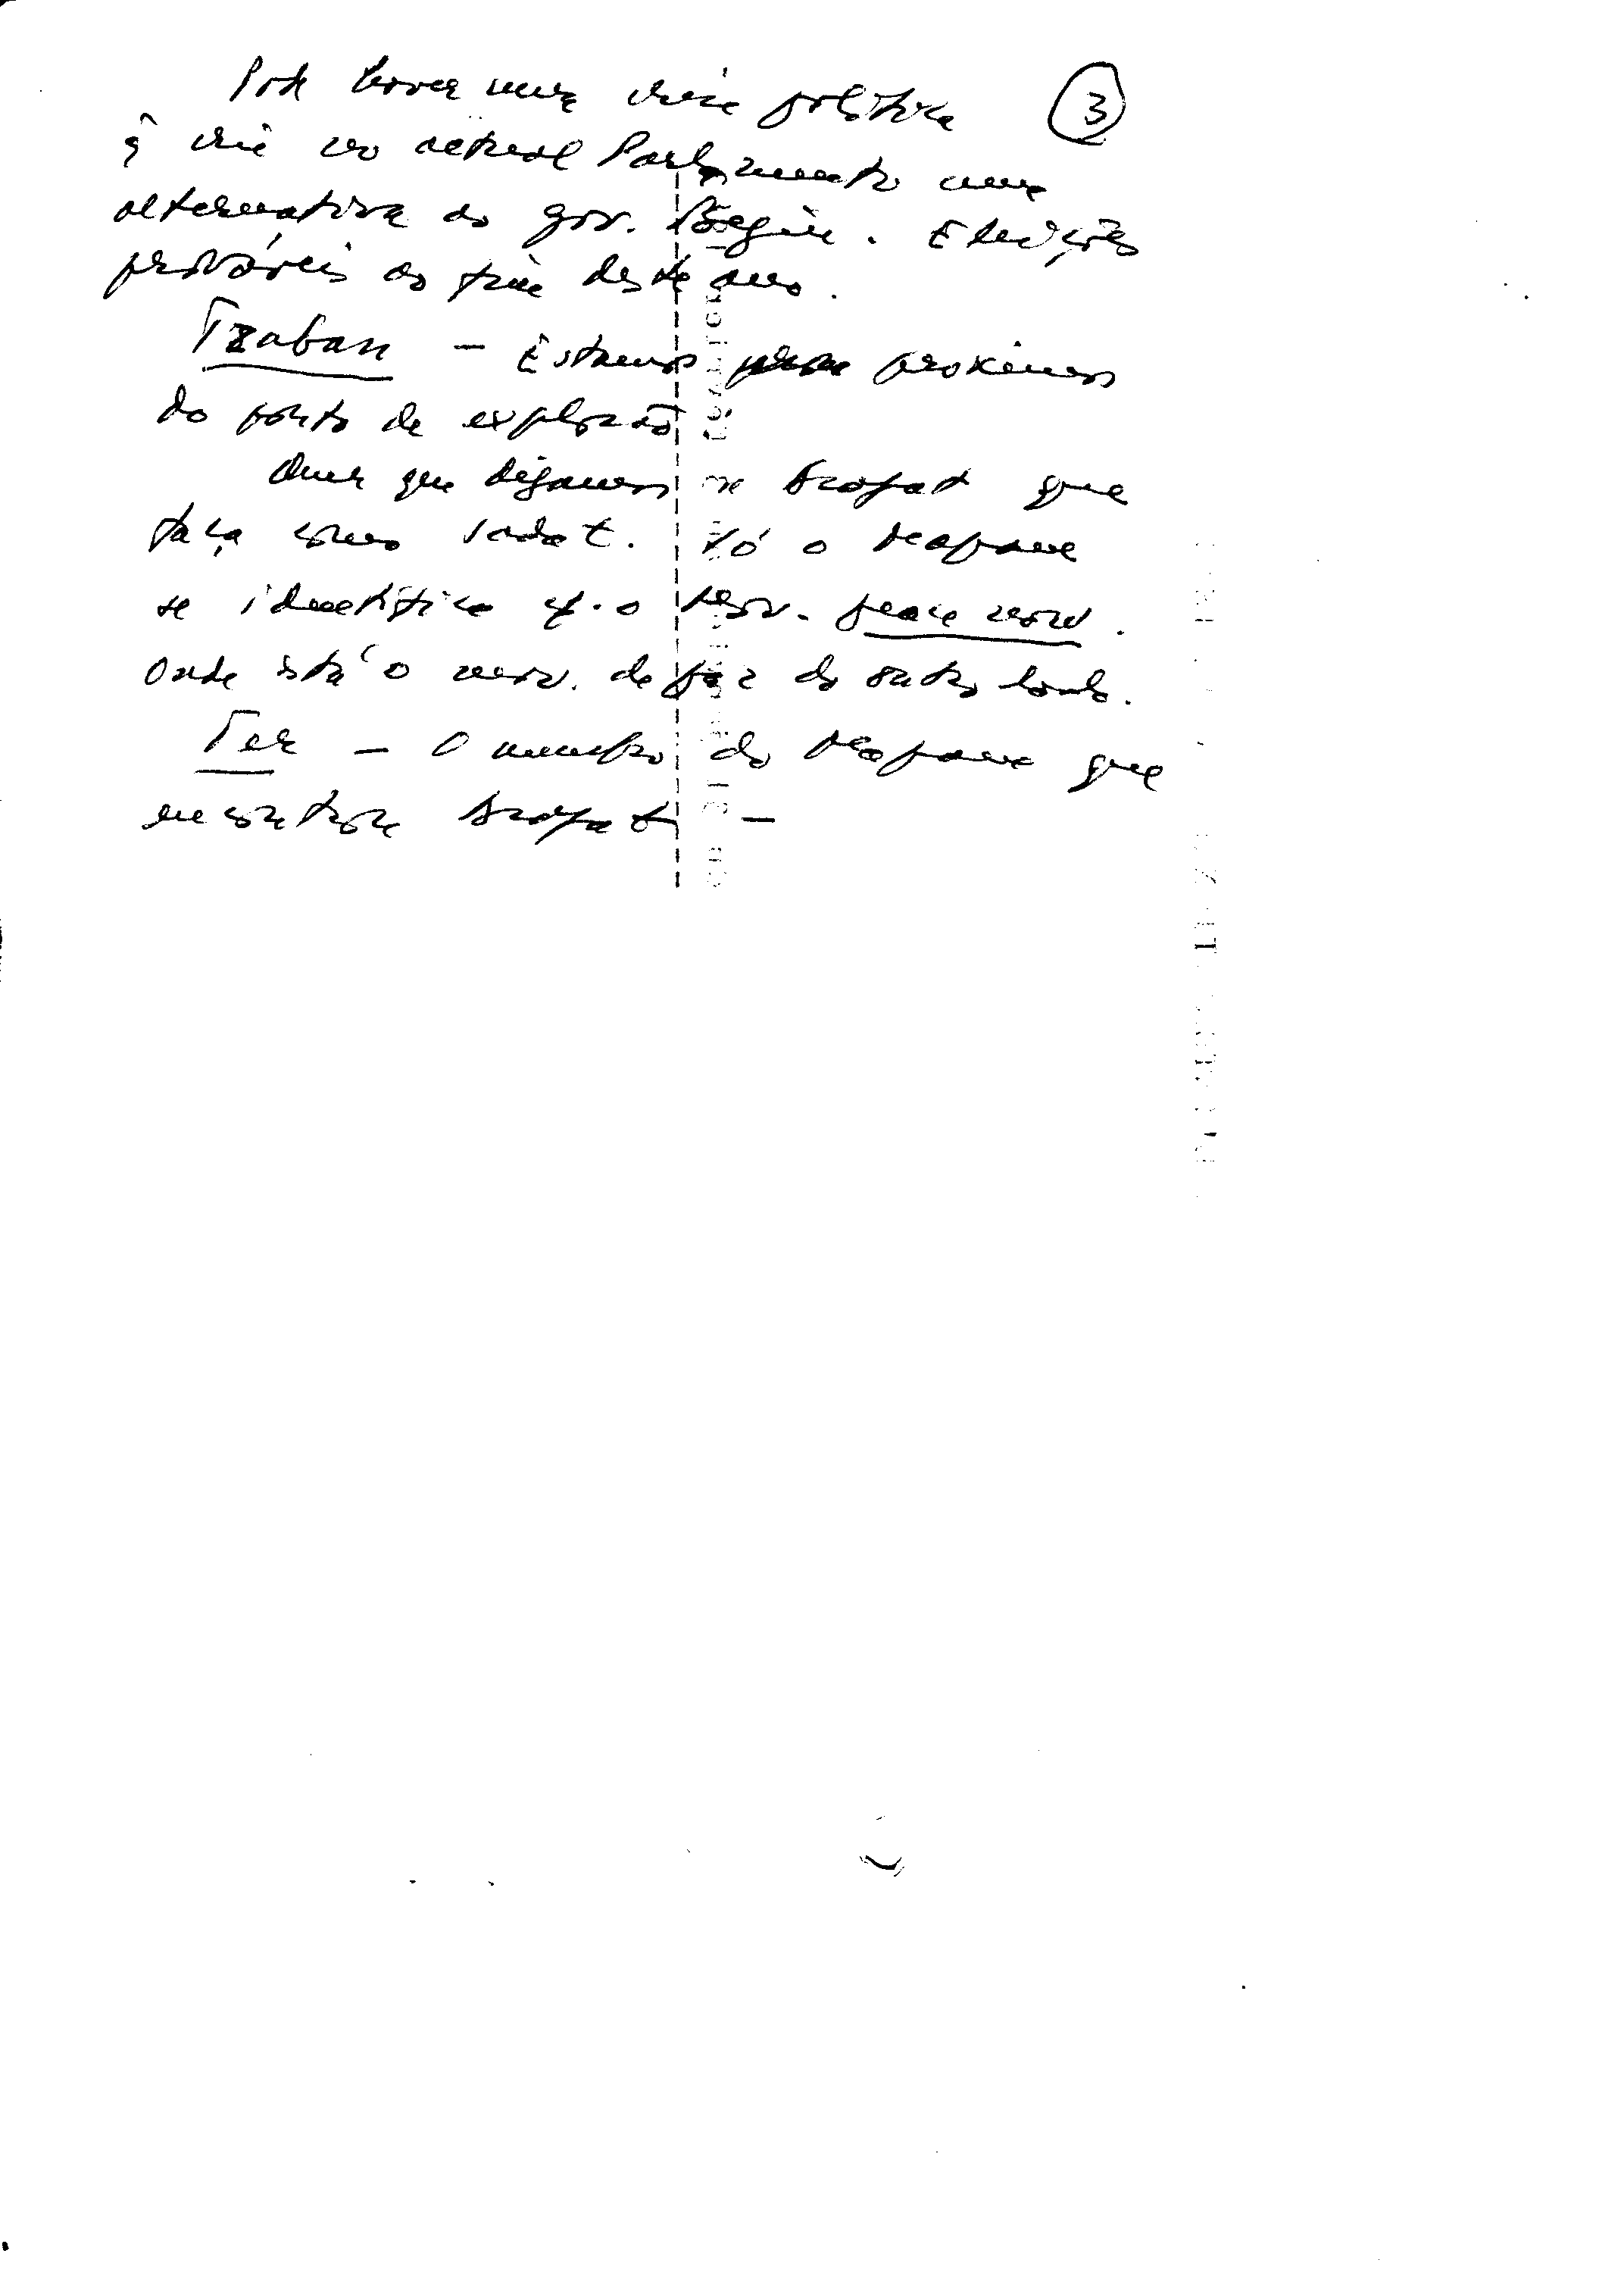 Pode haver uma crise política
③
q crie no actual Parlamento uma
alternativa ao gov. Begin. Eleições
prováveis ao fim deste ano.
Tzaban — Estamos proximos
do ponto de explosão
Quer que digamos a Arafat que
faça como Sadat. Só o Mapam
se identifica c. o mov. peace now.
Onde está o mov. de paz do outro lado.
— O membro do Mapam que
encontrou Arafat —